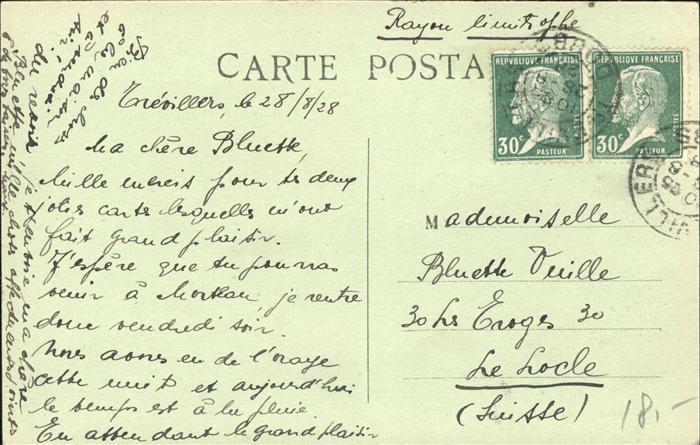 Rayon limitrophe
CARTE POSTA
REPVBLIQVE FRANÇAISE
30c
PASTEUR
REPVBLIQVE FRANÇAISE
30c
PASTEUR
Trévillers, le 28/8/28
Ma chère Bluette,
Mille mercis pour tes deux
jolies cartes lesquelles m'ont
fait grand plaisir.
J'espère que tu pourras
venir à Morteau, je rentre
donc vendredi soir.
Nous avons eu de l'orage
cette nuit et aujourd'hui
le temps est à la pluie.
En attendant le grand plaisir
du revoir, je t'envoie ma chère
Bluette, mille choses affectueuses
Mademoiselle
Bluette Vuille
30 Les Eroges 30
Le Locle
(Suisse)
18.-